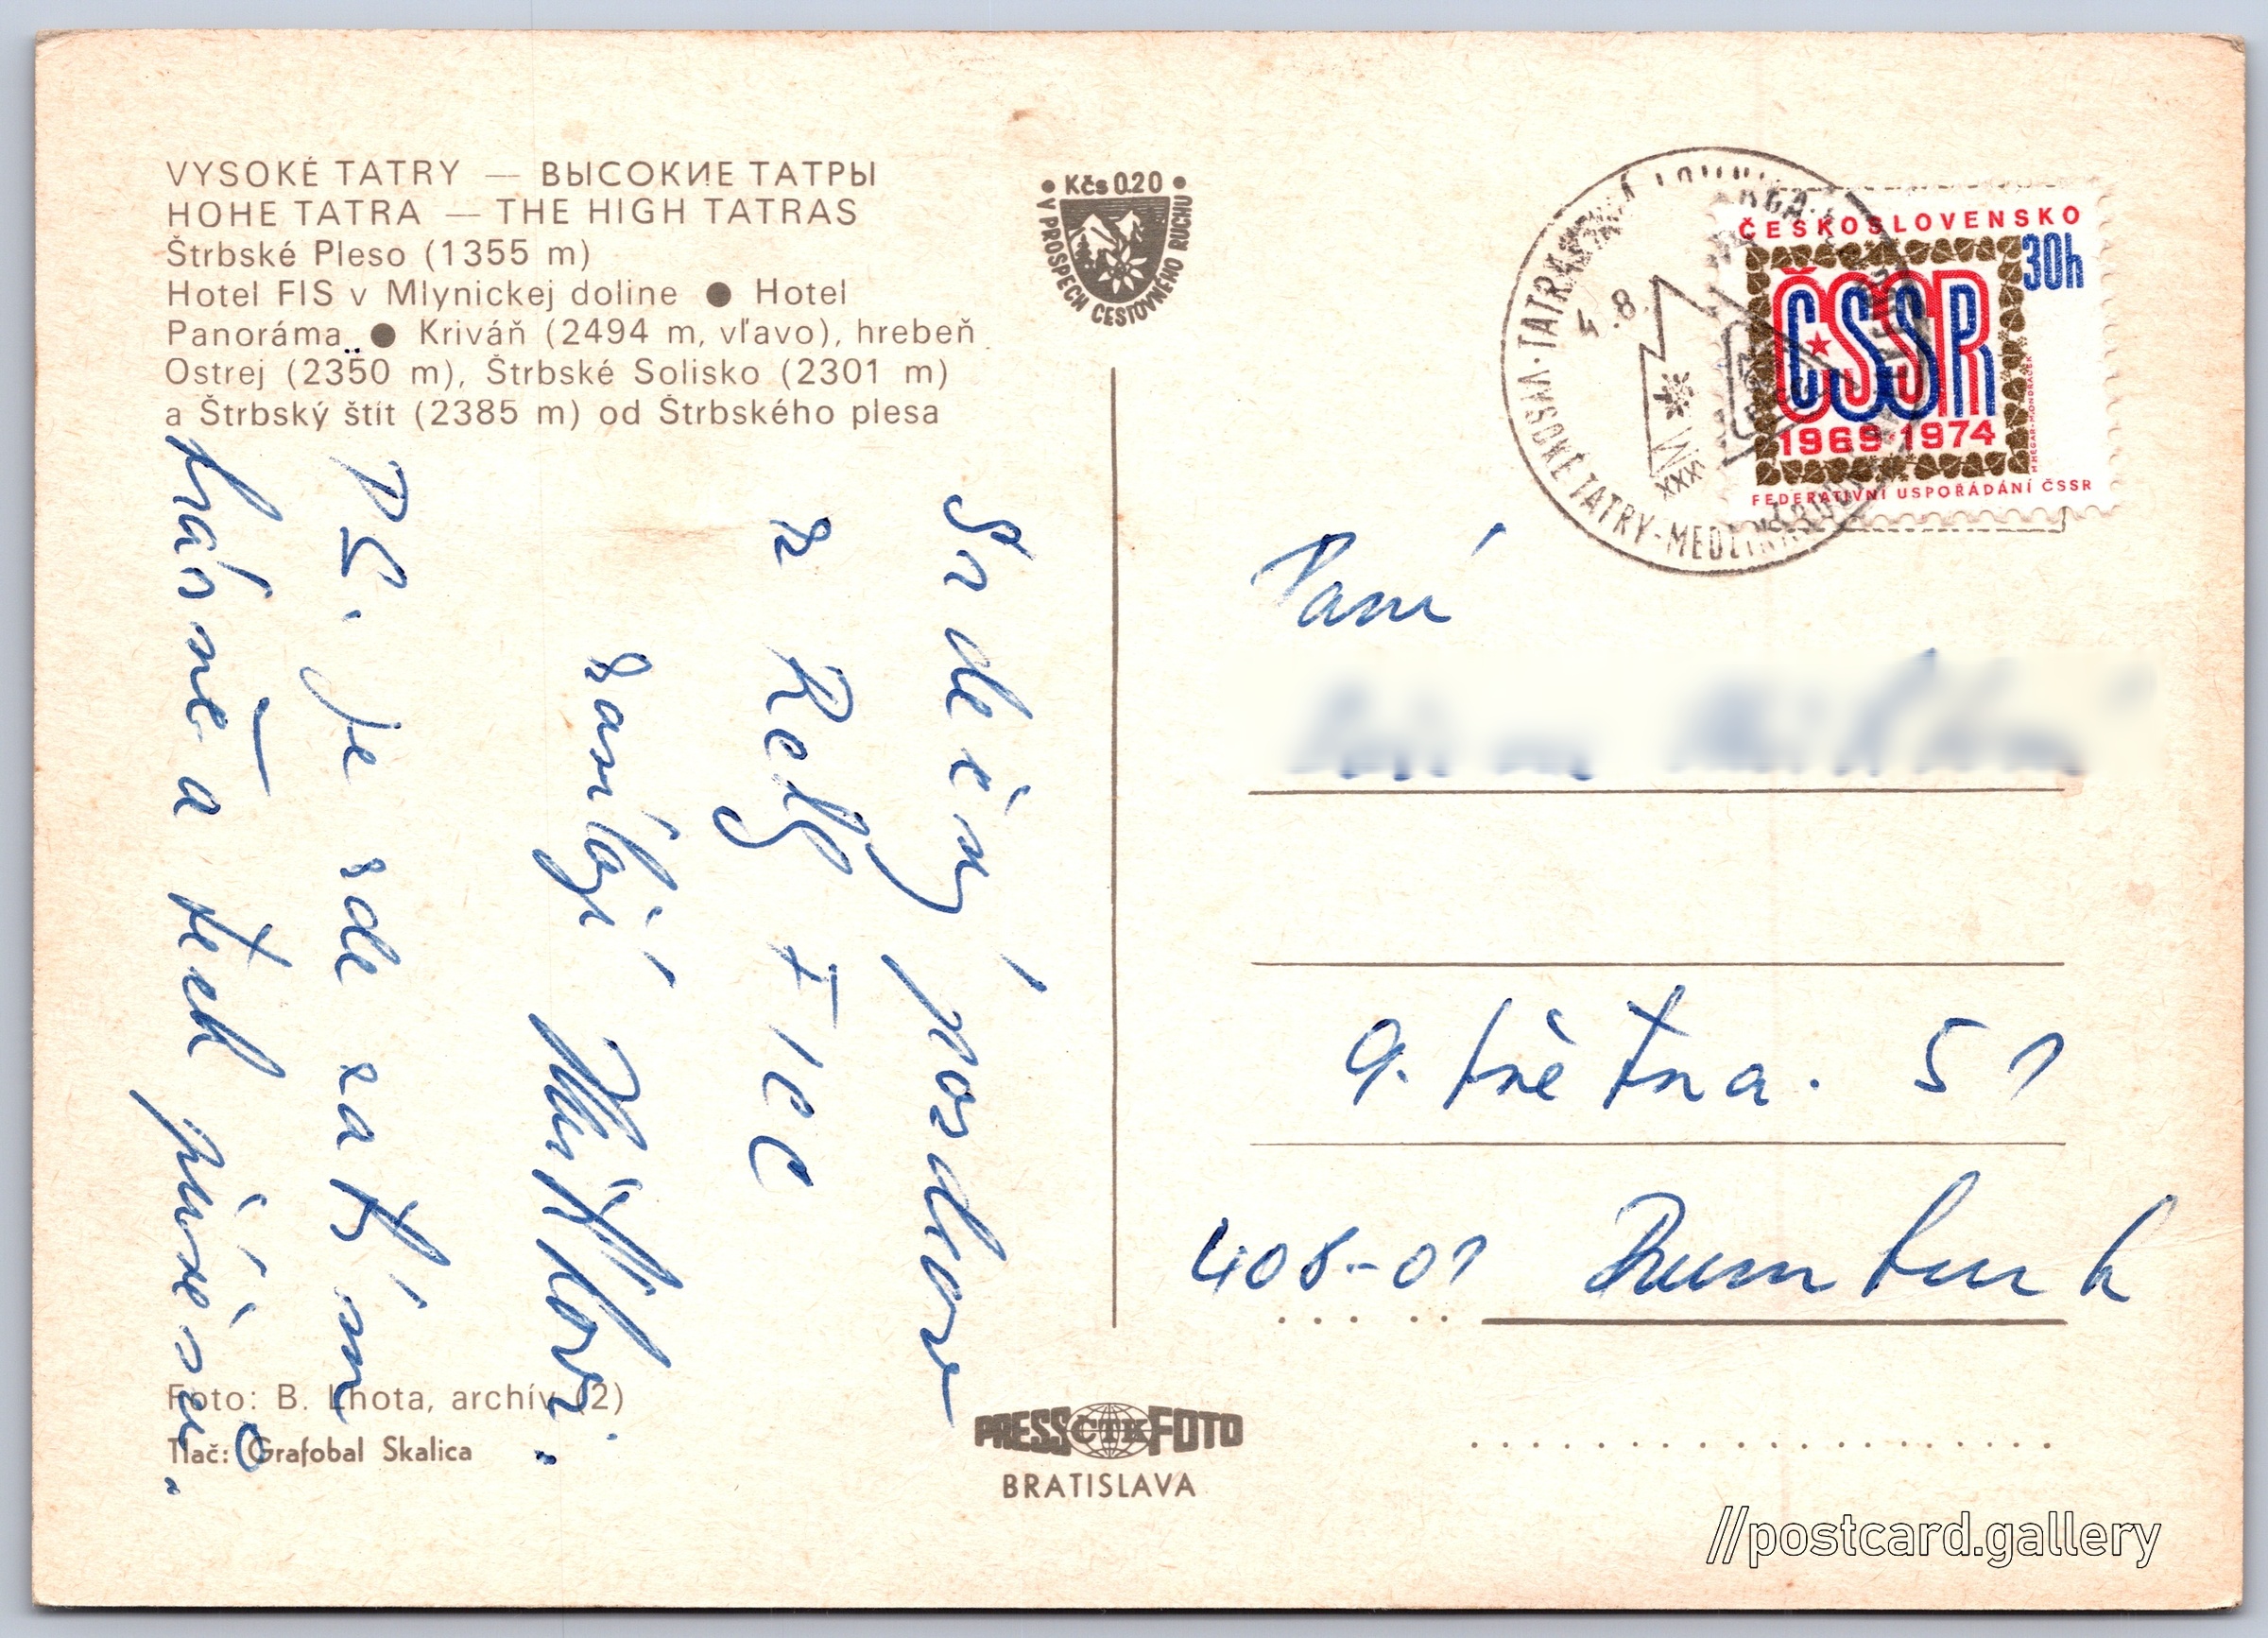 VYSOKÉ TATRY — ВЫСОКИЕ ТАТРЫ
HOHE TATRA — THE HIGH TATRAS
Štrbské Pleso (1355 m)
Hotel FIS v Mlynickej doline ● Hotel
Panoráma ● Kriváň (2494 m, vľavo), hrebeň
Ostrej (2350 m), Štrbské Solisko (2301 m)
a Štrbský štít (2385 m) od Štrbského plesa
• Kčs 0.20 •
V PROSPECH CESTOVNÉHO RUCHU
VYSOKÉ TATRY
XXXI
ČESKOSLOVENSKO
30h
ČSSR
1969-1974
FEDERATIVNÍ USPOŘÁDÁNÍ ČSSR
Srdečný pozdrav
z
zasílají
PS. je zde zatím
krásně a těch
Paní
9. května. 51
408-01 Rumburk
Foto: B. Lhota, archív (2)
Tlač: Grafobal Skalica
PRESS ČTK FOTO
BRATISLAVA
//postcard.gallery